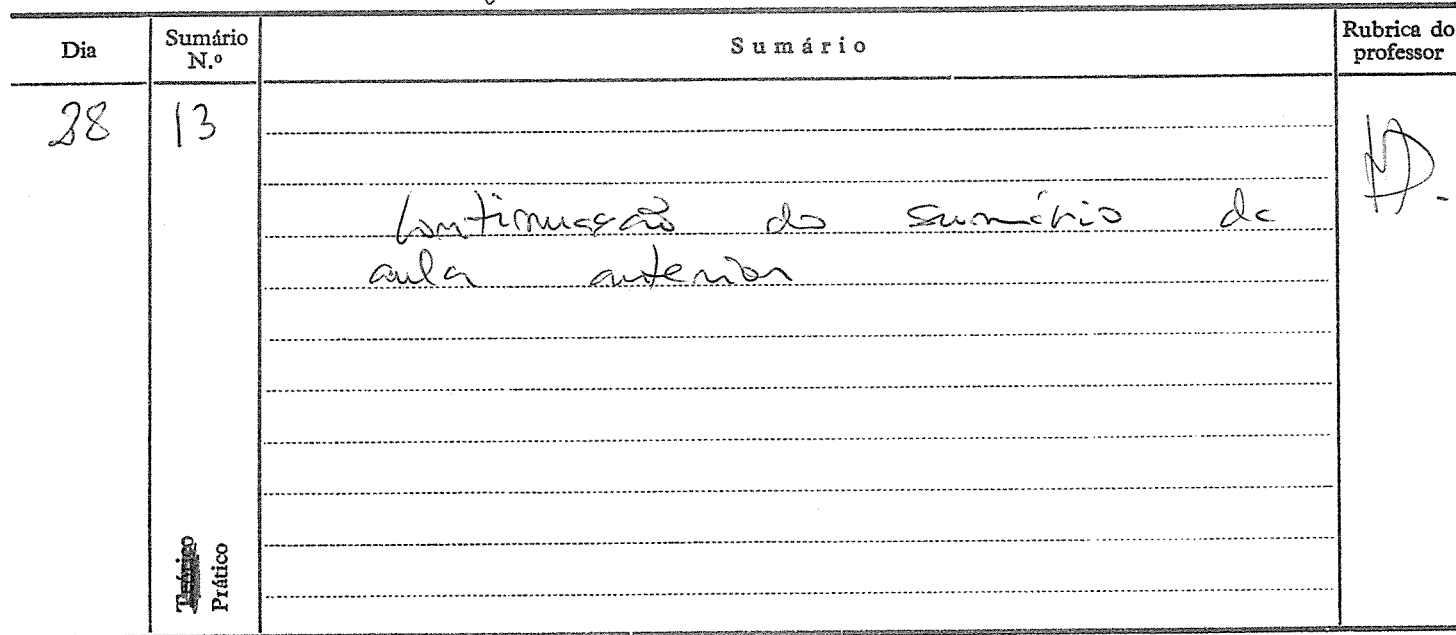 Dia
Sumário
N.º
Sumário
Rubrica do
professor
28
13
Continuação do sumário da
aula anterior
Teórico
Prático